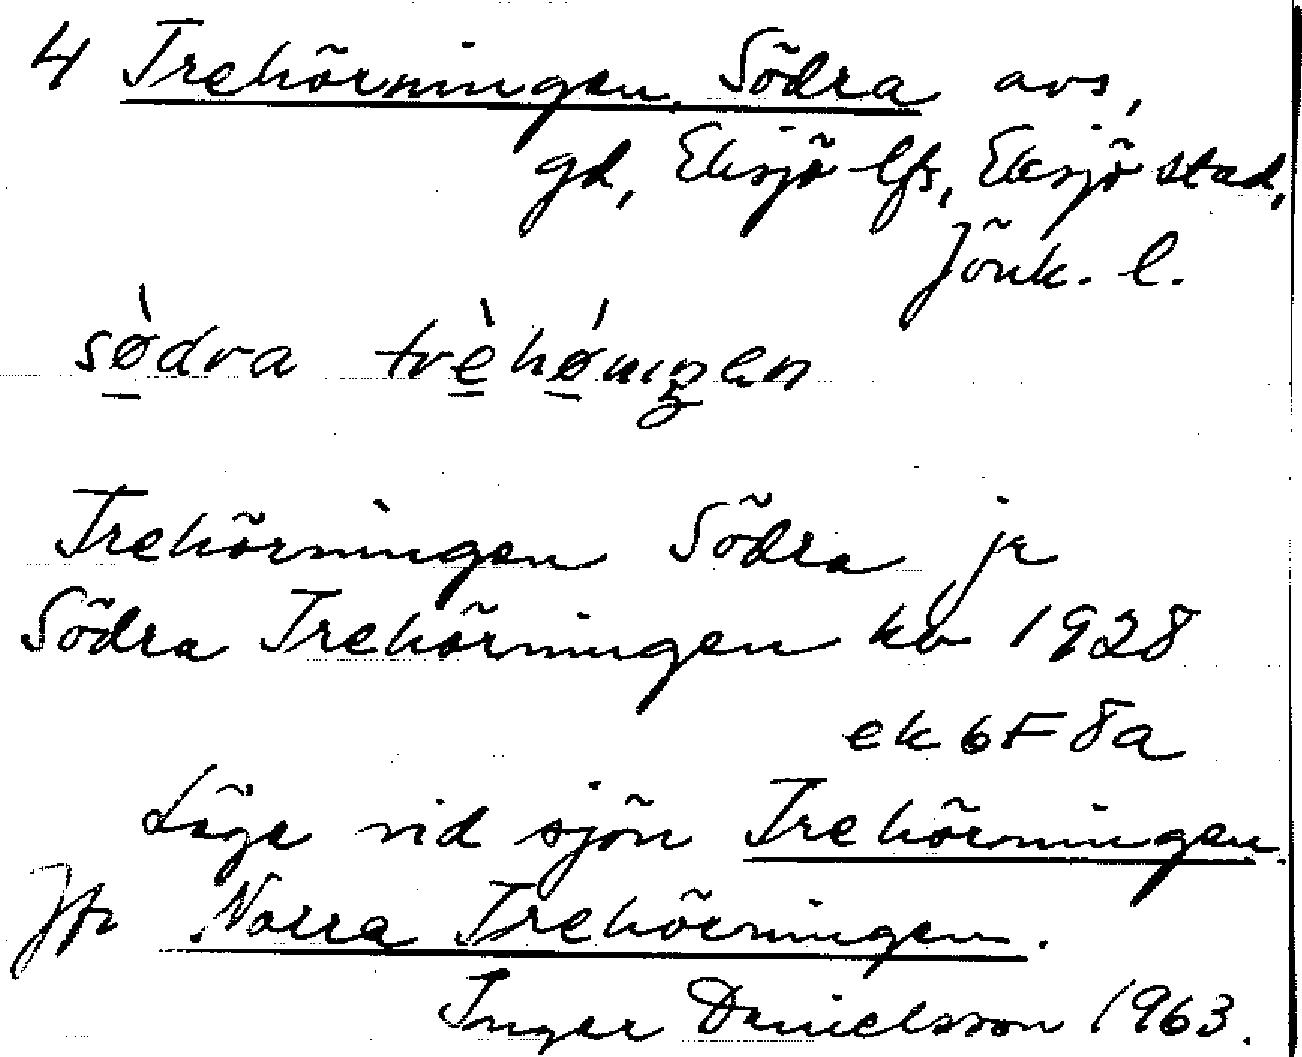 4 Trehörningen, Södra avs,
gd, Eksjö lfs, Eksjö stad,
Jönk. l.
sø̠̀dra trèhǿ̠rnıŋen
Trehörningen Södra jr
Södra Trehörningen kb 1928
ek 6F 8a
Läge vid sjön Trehörningen.
Jfr Norra Trehörningen.
Inger Danielsson 1963.